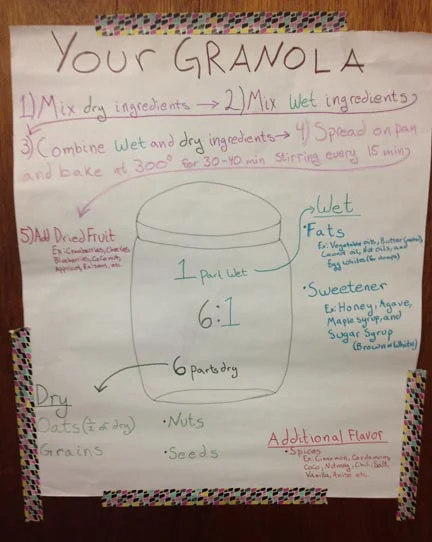 YOUR GRANOLA
1) Mix dry ingredients → 2) Mix wet ingredients
3) Combine wet and dry ingredients → 4) Spread on pan
and bake at 300° for 30-40 min stirring every 15 min
5) Add Dried Fruit
Ex: Cranberries, Cherries,
Blueberries, Coconut,
Apricot, Raisins, etc.
1 Part Wet
6:1
6 Parts dry
Wet
• Fats
Ex: Vegetable oils, Butter (melted),
Coconut oil, Nut oils, and
Egg whites (for clumps)
• Sweetener
Ex: Honey, Agave,
Maple syrup, and
Sugar Syrup
(Brown or White)
Dry
Oats (½ of dry)
Grains
• Nuts
• Seeds
Additional Flavor
• Spices
Ex: Cinnamon, Cardamom,
Coco, Nutmeg, Chili, Salt,
Vanilla, Anise etc.